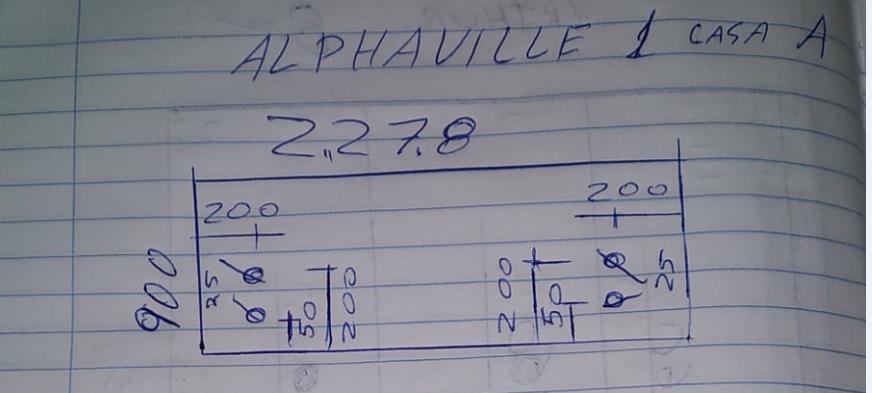 ALPHAVILLE 1 CASA A
2,27.8
200
200
900
25
50
200
200
50
25